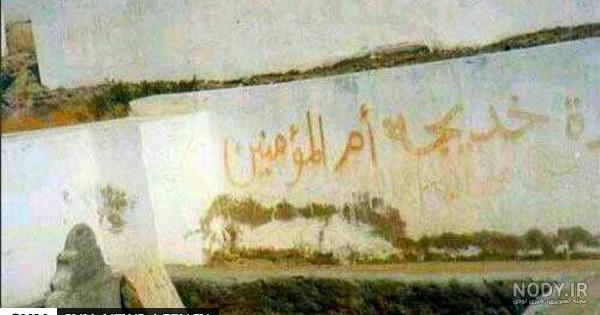 ة خديجه أم المؤمنين
NODY.IR
مجله تصویری، خبری نودی